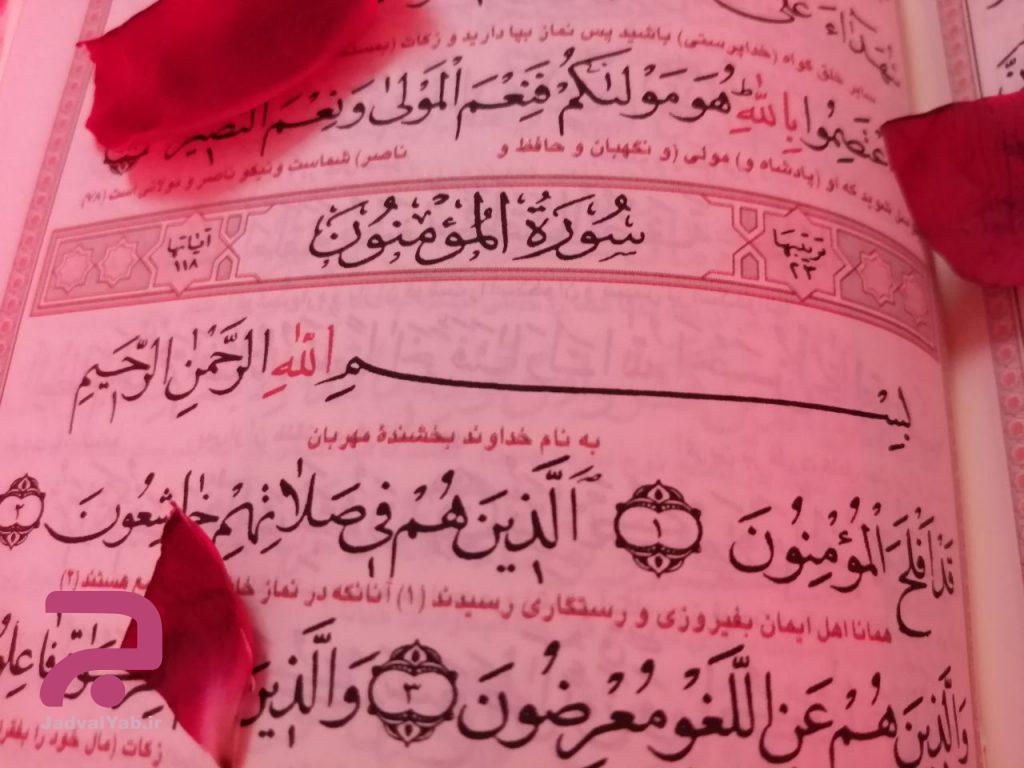 شُهَدَآءَ عَلَى
سایر خلق گواه (خداپرستی) باشید پس نماز بپا دارید و زکات
بِاللّٰهِ هُوَ مَوْلَىٰكُمْ فَنِعْمَ الْمَوْلَىٰ وَنِعْمَ النَّصِيرُ
شوید که او (پادشاه و) مولی (و نگهبان و حافظ و ناصر) شماست و نیکو ناصر و مولائی است (۷۸)
ترتیبها ۲۳ سُورَةُ الْمُؤْمِنُونَ آیاتها ۱۱۸
بِسْمِ اللّٰهِ الرَّحْمٰنِ الرَّحِيمِ
به نام خداوند بخشندهٔ مهربان
قَدْ أَفْلَحَ الْمُؤْمِنُونَ ۱ الَّذِينَ هُمْ فِي صَلَاتِهِمْ خَاشِعُونَ ۲
همانا اهل ایمان بفیروزی و رستگاری رسیدند (۱) آنانکه در نماز هستند (۲)
وَالَّذِينَ هُمْ عَنِ اللَّغْوِ مُعْرِضُونَ ۳ وَالَّذِينَ
زکات (مال خود را
JadvalYab.ir